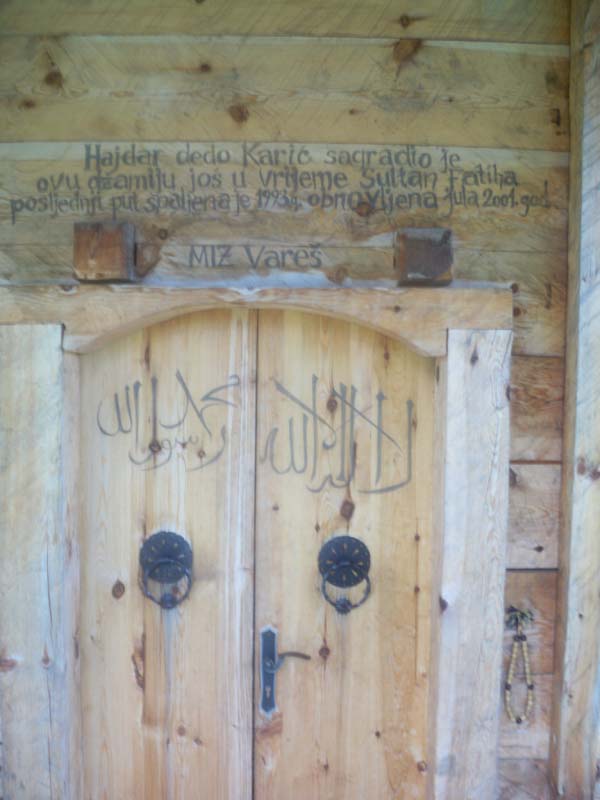 Hajdar dedo Karić sagradio je
ovu džamiju još u vrijeme Sultan Fatiha
posljednji put spaljena je 1993g. obnovljena jula 2001. god.
MIZ Vareš
لا اله الا الله
محمد رسول الله